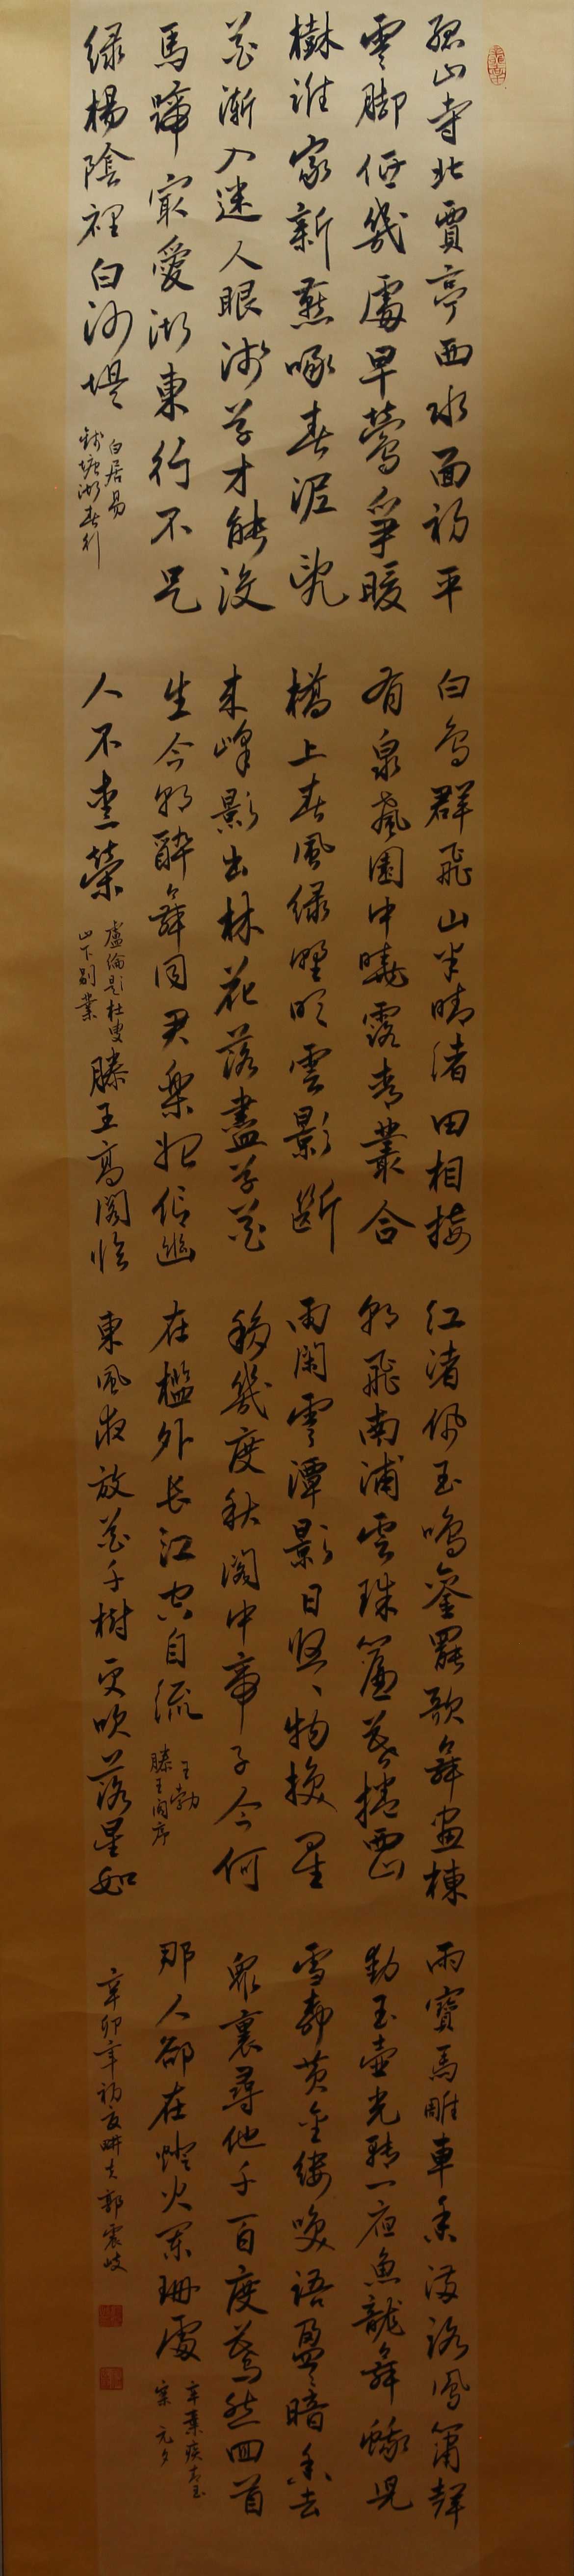 孤山寺北賈亭西水面初平
雲脚低幾處早鶯爭暖
樹誰家新燕啄春泥亂
花漸入迷人眼淺草才能沒
馬蹄最愛湖東行不足
綠楊陰裡白沙堤
白居易
錢塘湖春行
白鳥群飛山半晴渚田相接
有泉聲園中曉露青叢合
橋上春風綠野明雲影斷
來峰影出林花落盡草花
生今朝醉舞同君樂始信幽
人不愛榮
盧倫題杜叟
山下別業
滕王高閣臨
江渚佩玉鳴鑾罷歌舞畫棟
朝飛南浦雲珠簾暮捲西山
雨閑雲潭影日悠、物換星
移幾度秋閣中帝子今何
在檻外長江空自流
王勃
滕王閣序
東風夜放花千樹更吹落星如
雨寶馬雕車香滿路鳳簫聲
動玉壺光轉一夜魚龍舞蛾兒
雪柳黃金縷笑語盈、暗香去
眾裏尋他千百度驀然回首
那人卻在燈火闌珊處
辛棄疾青玉
案 元夕
辛卯年初夏畊夫郭震岐